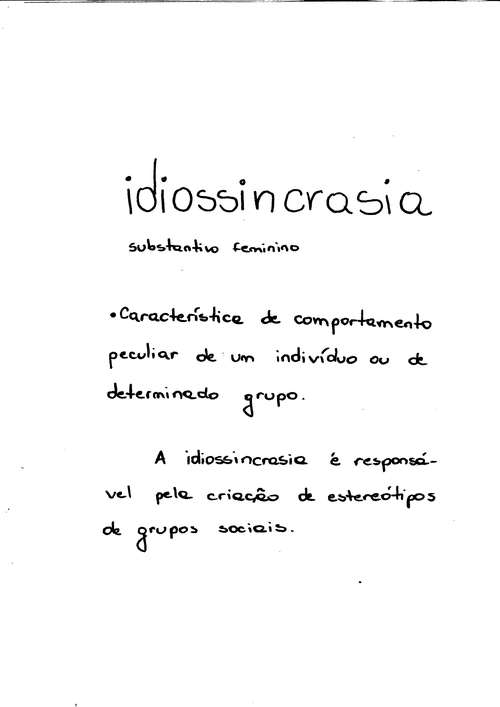 idiossincrasia
substantivo feminino
•Característica de comportamento
peculiar de um indivíduo ou de
determinado grupo.
A idiossincrasia é responsá-
vel pela criação de estereótipos
de grupos sociais.